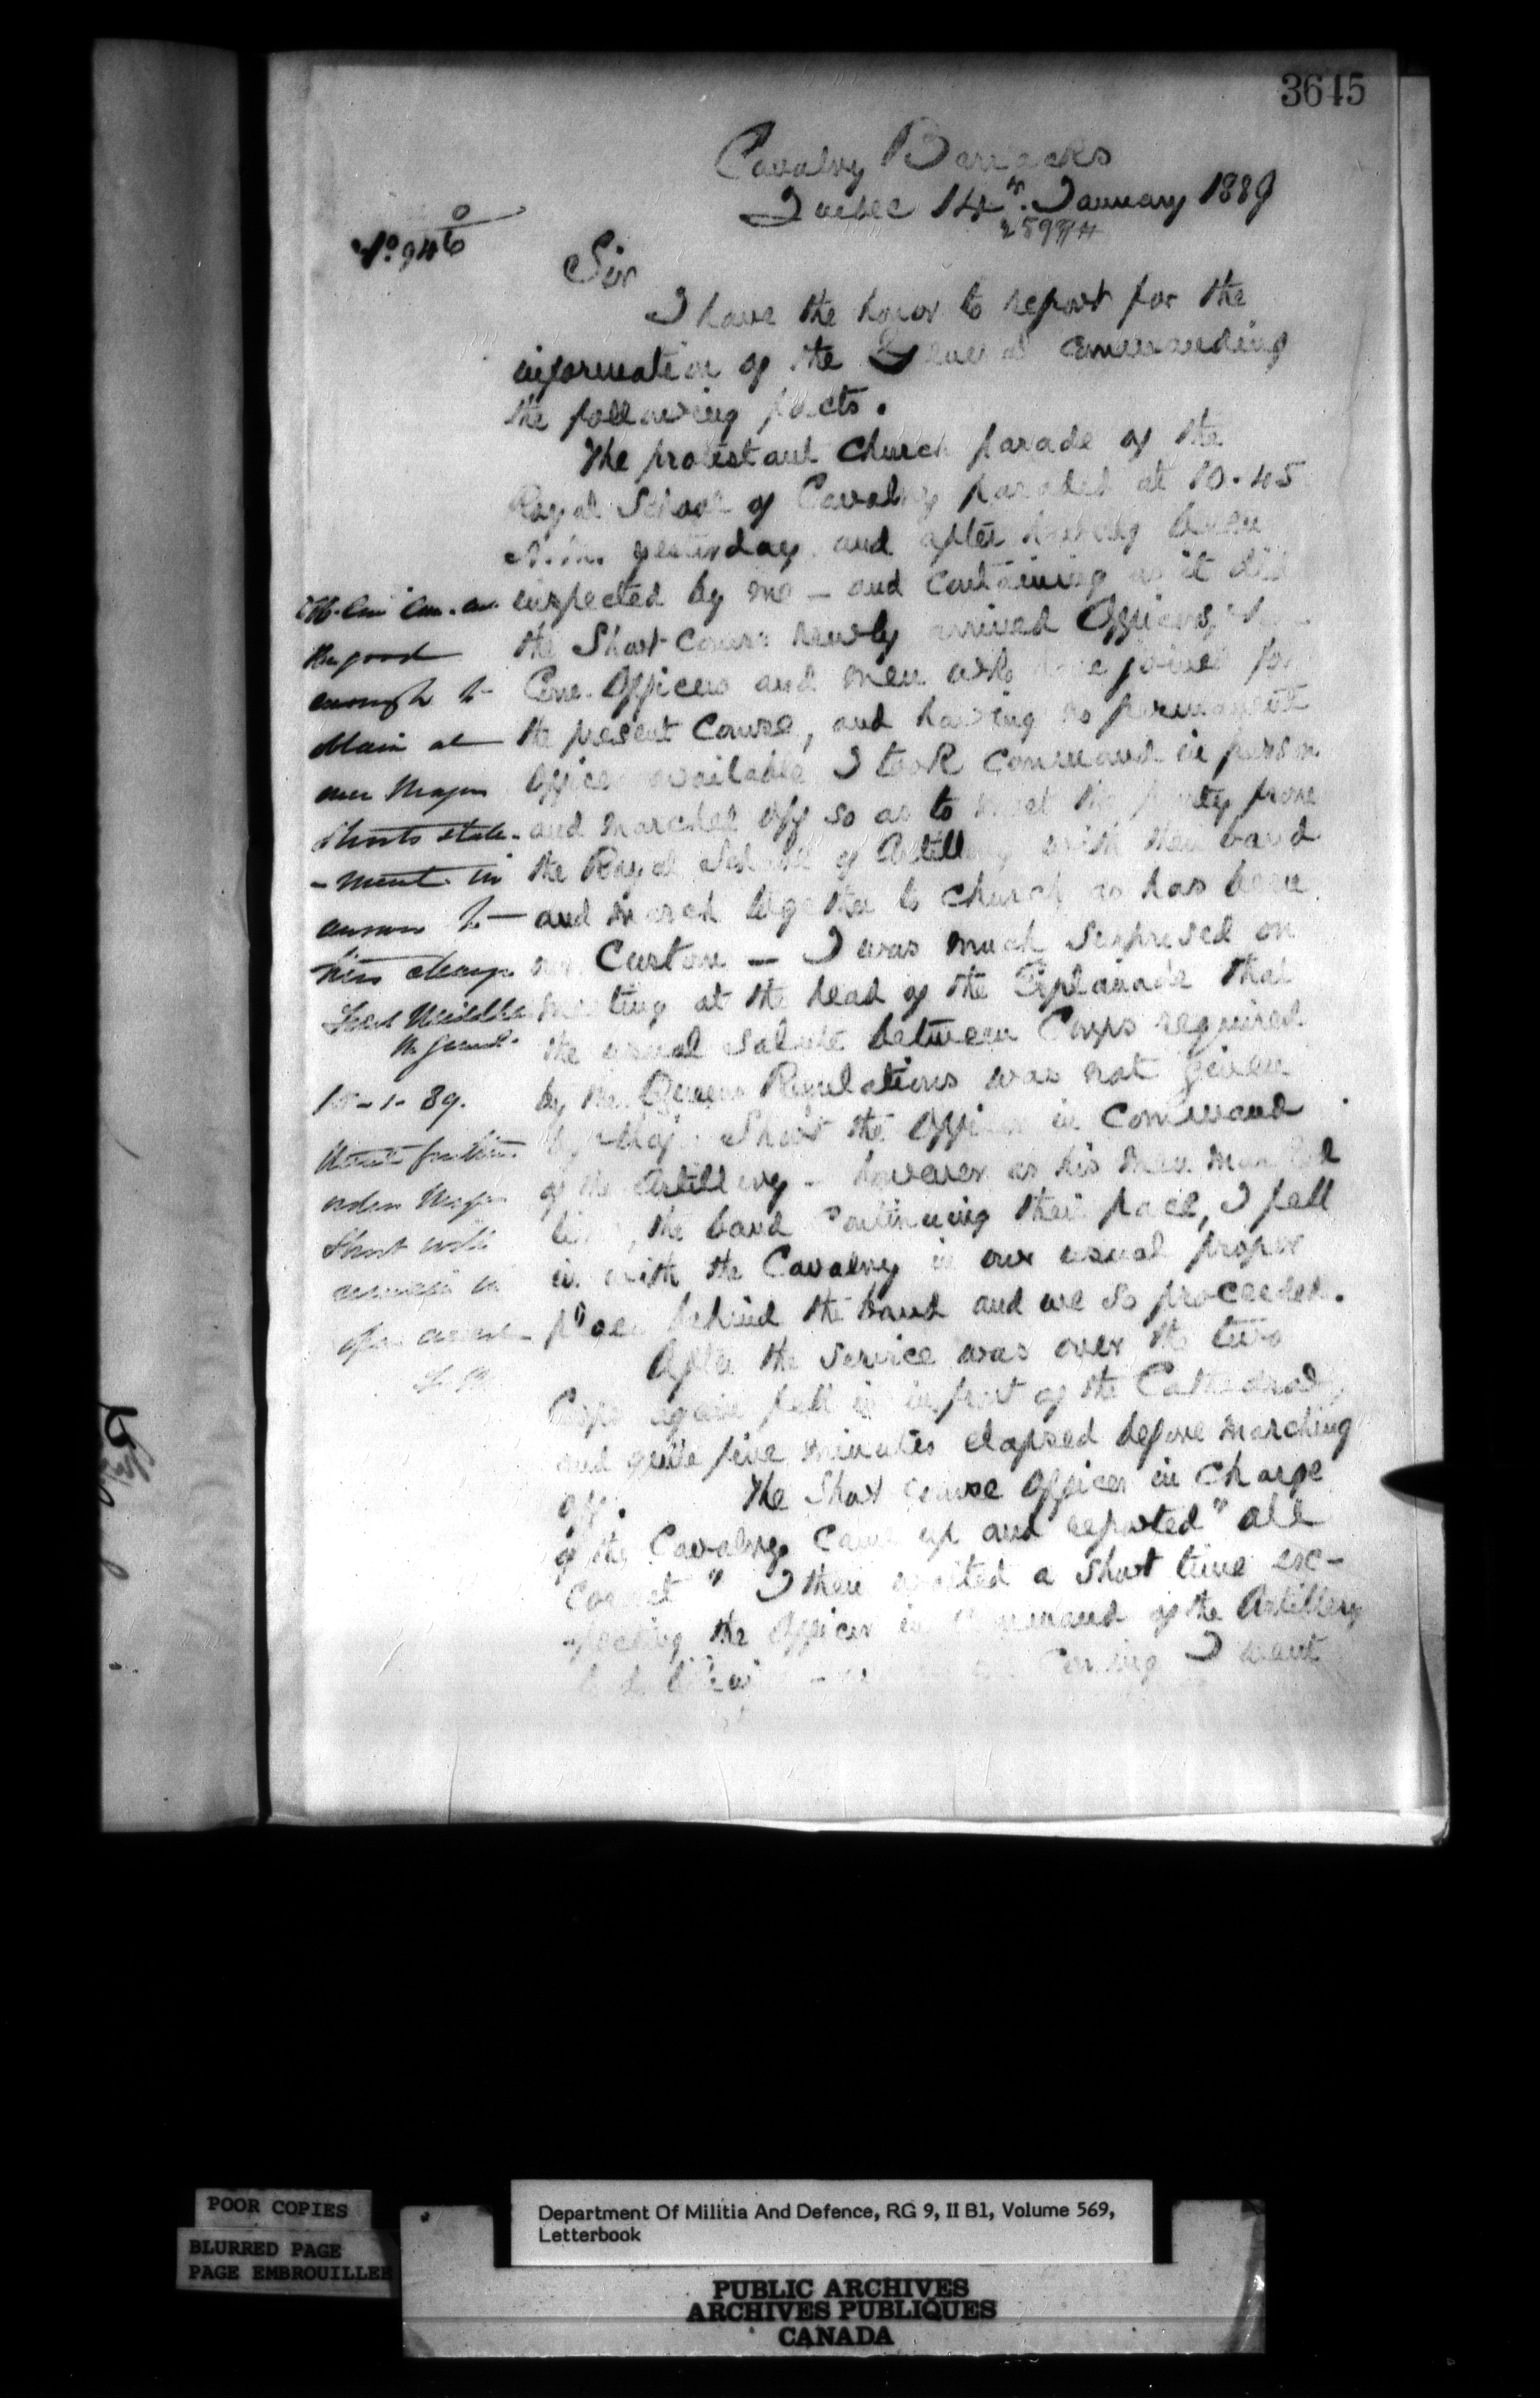 3645
Cavalry Barracks
Quebec 14th January 1889
No. 946
Sir
I have the honor to report for the
information of the General Commanding
the following facts.
The protestant Church parade of the
Royal School of Cavalry paraded at 10.45
A.M. yesterday and after having been
inspected by me - and containing as it did
the Short Course newly arrived Officers,
Com. Officers and men who have joined for
the present Course, and having no permanent
Officer available I took Command in person
and marched off so as to meet the party from
the Royal School of Artillery with their band
and march together to Church as has been
our Custom - I was much surprised on
meeting at the head of the Esplanade that
the usual salute between Corps required
by the Queens Regulations was not given
by Maj. Short the Officer in Command
of the Artillery - however as his men marched
the band continuing their pace, I fell
in with the Cavalry in our usual proper
place behind the band and we so proceeded.
After the service was over the two
Corps again fell in in front of the Cathedral,
and quite five minutes elapsed before marching
off. The Short Course Officer in Charge
of the Cavalry came up and reported "all
Correct" I then waited a short time ex-
pecting the Officer in Command of the Artillery
to do likewise - Coming I went
the good
enough to
obtain at
once Major
Shorts state-
-ment in
answer to
this charge
Fred Middleton
M. Genl.
15-1-89.
Until further
orders Major
Short will
remain in
open arrest
F. M.
POOR COPIES
BLURRED PAGE
PAGE EMBROUILLEE
Department Of Militia And Defence, RG 9, II B1, Volume 569,
Letterbook
PUBLIC ARCHIVES
ARCHIVES PUBLIQUES
CANADA